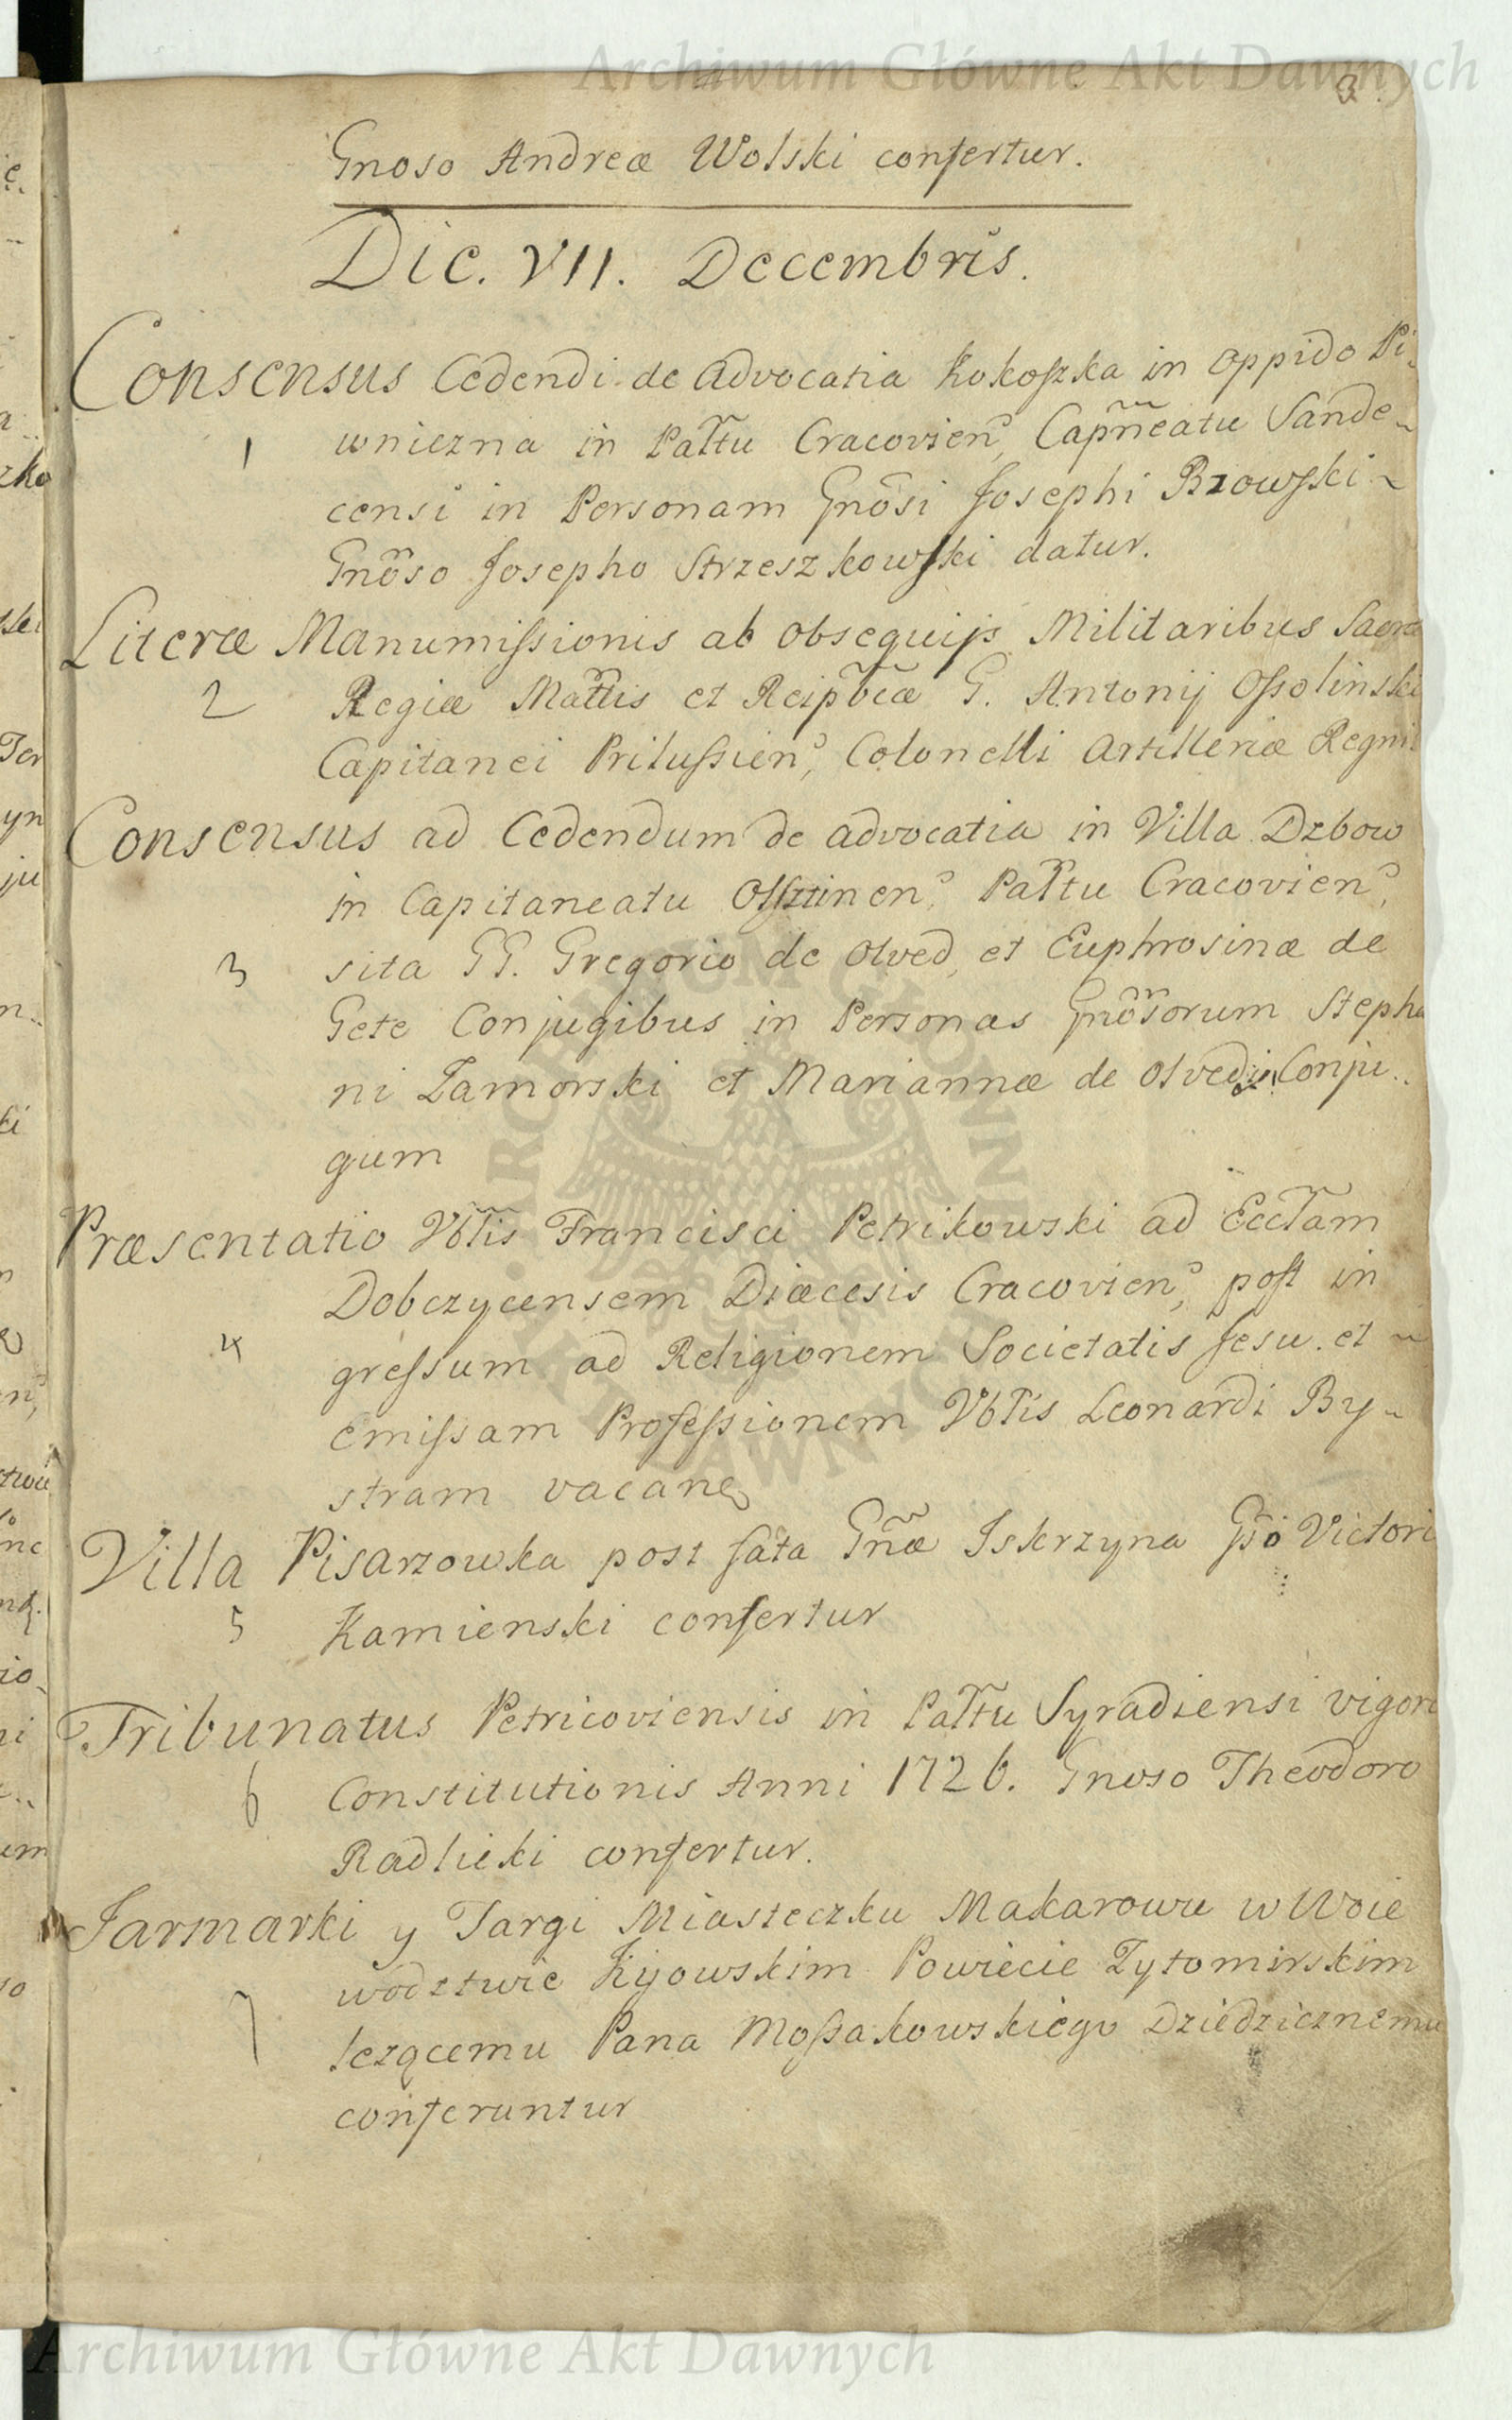 Archiwum Główne Akt Dawnych
3
Gnoso Andreæ Wolski confertur.
Die. VII. Decembris.
Consensus Cedendi de Advocatia Kokoszka in oppido Pi-
1 wniczna in Pałtu Cracovien, Capñeatu Sande-
censi in Personam Gnosi Josephi Bzowski
Gnoso Josepho Strzeszkowski datur.
Literæ Manumissionis ab obsequijs Militaribus Sacræ
2 Regiæ Mattis et Reipbcæ G. Antonij Ossolinski
Capitanei Prilussien, Colonelli Artilleriæ Regni
Consensus ad Cedendum de advocatia in Villa Dzbow
in Capitaneatu Olsztinen, Pałtu Cracovien,
3 sita GG. Gregorio de Olved, et Euphrosinæ de
Gete Conjugibus in Personas Gnosorum Stepha
ni Zamorski et Mariannæ de Olvedi Conju..
gum
Præsentatio Vbtis Francisci Petrikowski ad Ecctam
Dobczycensem Diæcesis Cracovien, post in
4 gressum ad Religionem Societatis Jesu. et
emissam Professionem Vbtis Leonardi By-
stram vacanẽ
Villa Pisarzowka post fata Gnæ Iskrzyna Gso Victori
5 Kamienski confertur
Tribunatus Petricoviensis in Pałtu Syradiensi vigore
6 Constitutionis Anni 1726. Gnoso Theodoro
Radlicki confertur.
Jarmarki y Targi Miasteczku Makarowu w Woie
wodztwie Kijowskim Powiecie Zytomirskim
7 lezącemu Pana Mossakowskiego Dziedzicznemu
conferuntur
ARCHIWUM GŁÓWNE AKT DAWNYCH
Archiwum Główne Akt Dawnych